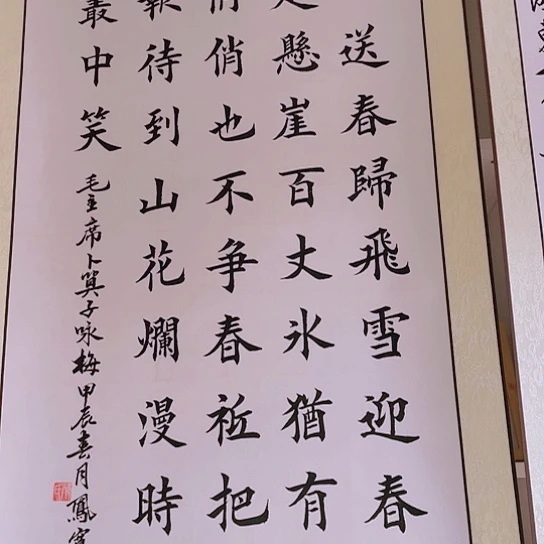 送春歸飛雪迎春
懸崖百丈冰猶有
俏也不争春祇把
報待到山花爛漫時
叢中笑
毛主席卜算子咏梅甲辰春月鳳